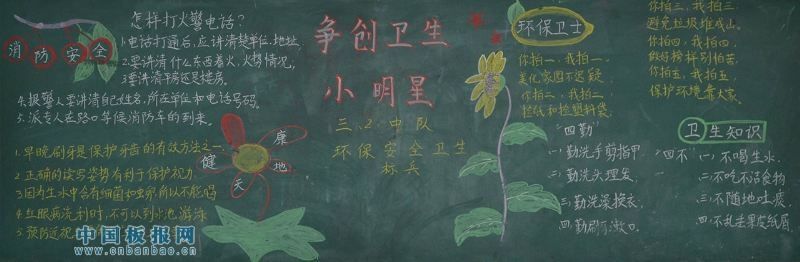 消防安全
怎样打火警电话?
1.电话打通后,应讲清楚单位、地址
2.要讲清什么东西着火,火势情况,
3.要讲清平房还是楼房。
4.报警人要讲清自己姓名,所在单位和电话号码。
5.派专人在路口等候消防车的到来。
1.早晚刷牙是保护牙齿的有效方法之一.
2.正确的读写姿势有利于保护视力.
3.因为生水中含有细菌和虫卵所以不能喝
4.红眼病流利时,不可以到水池游泳
5.预防近视
健康天地
争创卫生
小明星
三.2中队
环保安全卫生
标兵
环保卫士
你拍一,我拍一
美化家园不迟疑
你拍二,我拍二
拦纸和捡塑料袋
你拍三,我拍三
避免垃圾堆成山。
你拍四,我拍四
做好榜样别怕苦
你拍五,我拍五
保护环境靠大家.
"四勤"
一.勤洗手剪指甲.
二.勤洗头理发.
三.勤洗澡换衣.
四.勤刷牙漱口.
卫生知识
"四不"
一.不喝生水.
二.不吃不洁食物
三.不随地吐痰
四.不乱丢果皮纸屑
中国板报网
www.cnbanbao.cn